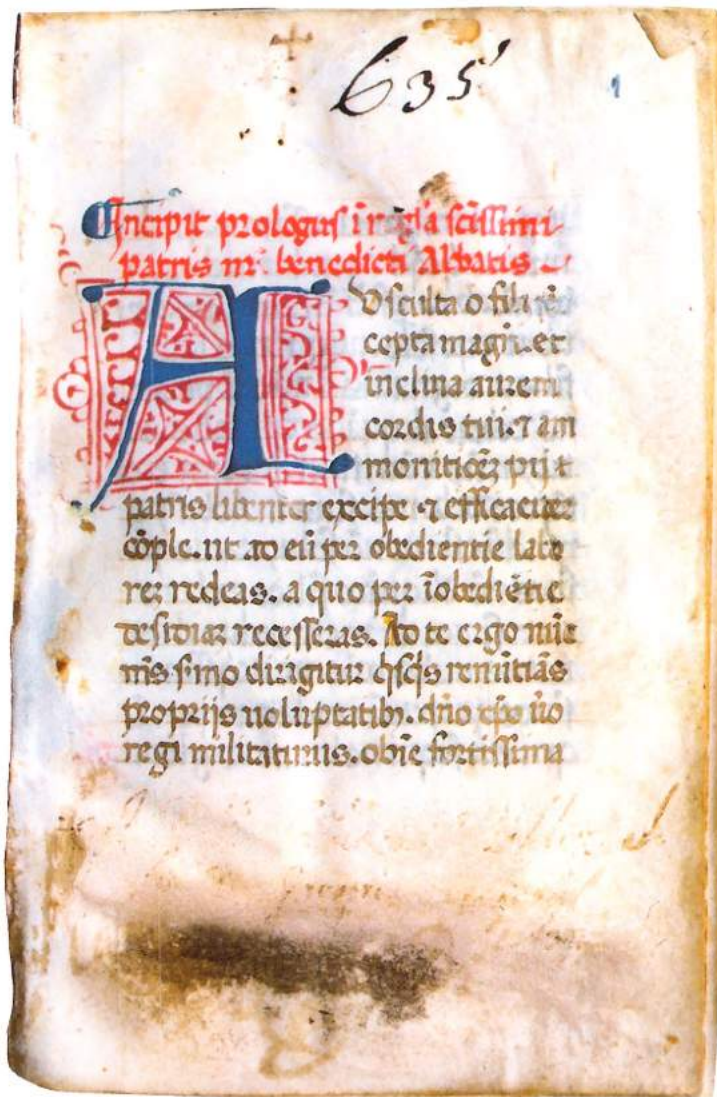 635
1
Incipit prologus ī regl'a scīssimi
patris nr̄i benedicti Abbatis
AUsculta o fili p̄
cepta magr̄i. et
inclina aurem
cordis tui. ⁊ am
monitionē pij
patris libenter excipe ⁊ efficaciter
cōple. ut ad eū per obedientie labo
rem redeas. a quo per īobediētie
desidiam recesseras. Ad te ergo nūc
m̄s s̄mo dirigitur q̄sq̄s renūtiās
proprijs uoluptatibꝫ. dn̄o xp̄o ūo
regi militaturus. obīe fortissima